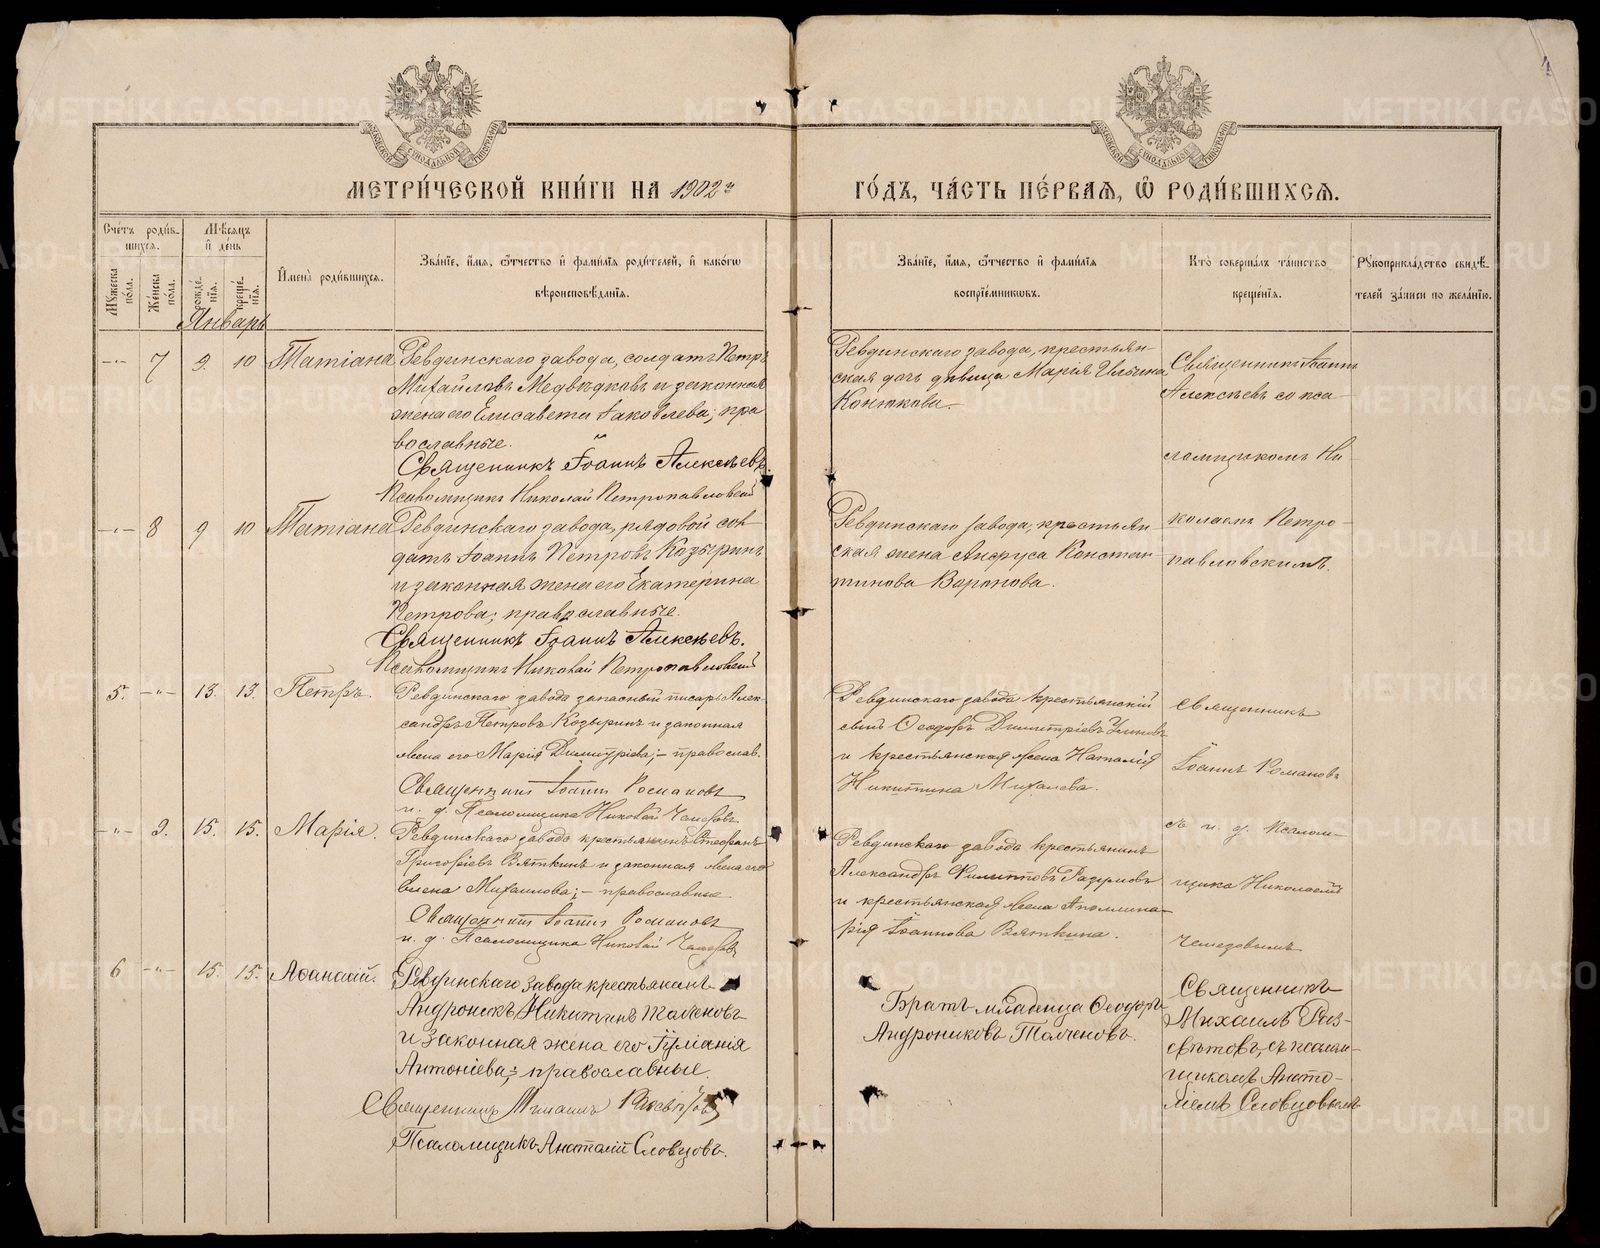 4
МОСКОВСКОЙ СѴНОДАЛЬНОЙ ТИПОГРАФІИ
МОСКОВСКОЙ СѴНОДАЛЬНОЙ ТИПОГРАФІИ
МЕТРИ́ЧЕСКОЙ КНИ́ГИ НА 1902й
ГО́ДЪ, ЧА́СТЬ ПЕ́РВАЯ, Ѽ РОДИ́ВШИХСЯ.
Сче́тъ роди́в-
шихся.
Мѣ́сяцъ
и҆ де́нь
Му́жеска по́ла.
Же́нска по́ла.
рожде́-
нїя.
креще́-
нїя.
И҆мена̀ роди́вшихся.
Зва́нїе, и҆́мя, ѻ҆́тчество и҆ фами́лїя роди́телей, и҆ како́гѡ
вѣроисповѣ́данїя.
Зва́нїе, и҆́мя, ѻ҆́тчество и҆ фами́лїя
воспрїе́мникѡвъ.
Кто̀ соверша́лъ та́инство
креще́нїя.
Рꙋкоприкла́дство свидѣ́-
телей за́писи по жела́нїю.
Январь
-"- 7 9 10 Татіана
Ревдинскаго завода, солдатъ Петръ
Михайловъ Медвѣдковъ и законная
жена его Елисавета Іаковлева; пра
вославные.
Священникъ Іоаннъ Алексѣевъ.
Псаломщикъ Николай Петропавловскій
Ревдинскаго завода, крестьян-
ская дочь дѣвица Марія Ильина
Конюкова.
Священникъ Іоаннъ
Алексѣевъ со пса-
ломщикомъ Ни-
колаемъ Петро-
павловскимъ.
-"- 8 9 10 Татіана
Ревдинскаго завода, рядовой сол-
датъ Іоаннъ Петровъ Козыринъ
и законная жена его Екатерина
Петрова; православные.
Священникъ Іоаннъ Алексѣевъ.
Псаломщикъ Николай Петропавловскій
Ревдинскаго завода, крестьян
ская жена Анфуса Констан-
тинова Воронова.
5. -"- 13. 13. Петръ.
Ревдинскаго завода запасный писарь Алек-
сандръ Петровъ Козыринъ и законная
жена его Марія Димитріева; - православ.
Священникъ Іоаннъ Романовъ
и. д. Псаломщика Николай
Ревдинскаго завода крестьянскій
сынъ Ѳеодоръ Димитріевъ
и крестьянская жена Наталія
Никитина Михалева.
Священникъ
Іоаннъ Романовъ
съ и. д. псалом-
щика Николаемъ
-"- 9. 15. 15. Марія.
Ревдинскаго завода крестьянинъ Стефанъ
Григорьевъ Вяткинъ и законная жена его
Елена Михаилова; - православные
Священникъ Іоаннъ Романовъ
и. д. Псаломщика Николай
Ревдинскаго завода крестьянинъ
Александръ Филипповъ
и крестьянская жена Аполлина-
рія Іоаннова Вяткина.
6 -"- 15. 15. Аѳанасій.
Ревдинскаго завода крестьянинъ
Андроникъ Никитинъ Талченовъ
и законная жена его Іуліанія
Антоніева; православные.
Священникъ Михаилъ
Псаломщикъ Анатолій Словцовъ.
Братъ младенца Ѳеодоръ
Андрониковъ Талченовъ.
Священникъ
Михаилъ Раз-
свѣтовъ, съ псалом-
щикомъ Анато-
ліемъ Словцовымъ
METRIKI.GASO-URAL.RU